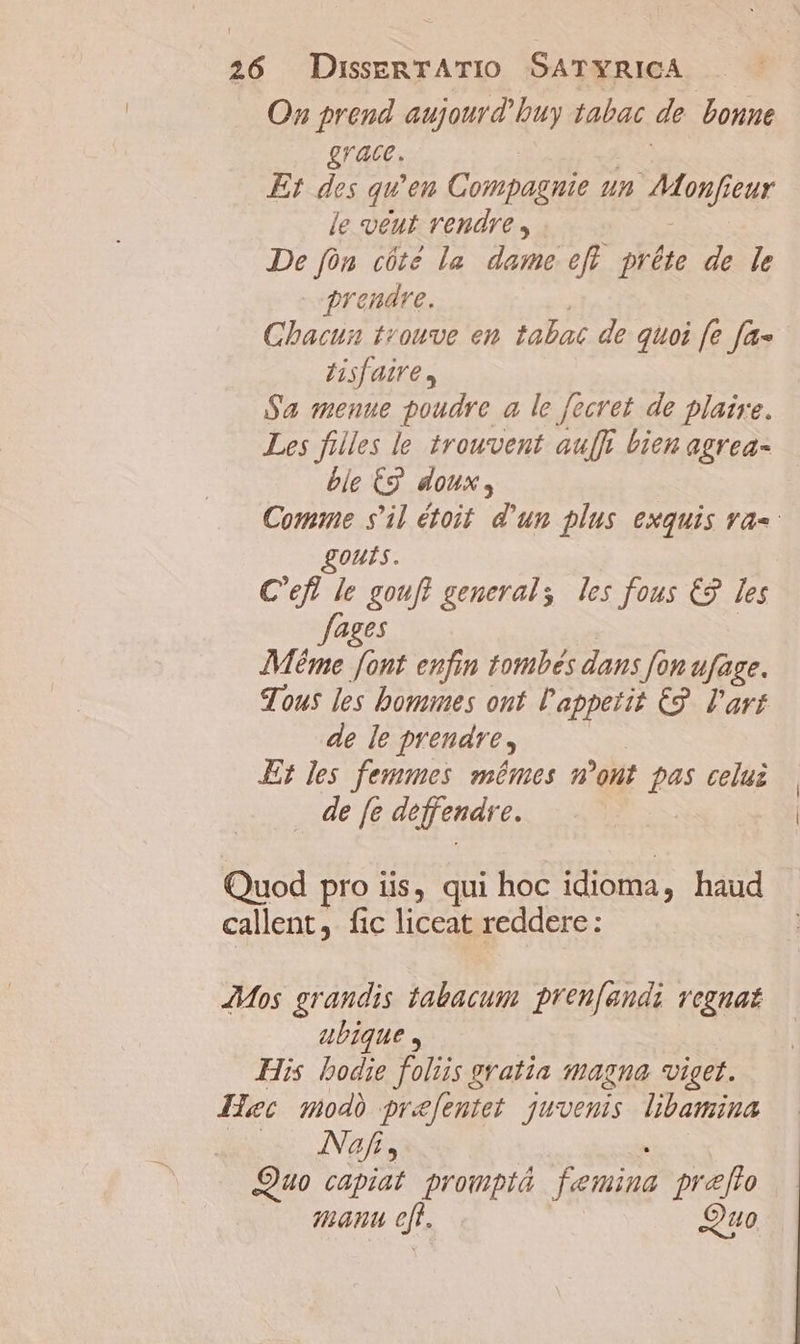 26 DISSERTATIO SATYRICA
On prend aujourd'huy tabac de bonne
grace.
Et des qu'en Compagnie un Monſieur
le veut rendre,
De ſon côté la dame eſt prête de le
prendre.
Chacun trouve en tabac de quoi ſe ſa-
tisfaire,
Sa menue poudre a le ſecret de plaire.
Les filles le trouvent auſſi bien agrea-
ble & doux,
Comme s'il étoit d'un plus exquis ra-
gouts.
C'eſt le gouſt general; les fous & les
ſages
Même ſont enfin tombés dans ſon uſage.
Tous les hommes ont l'appetit & l'art
de le prendre,
Et les femmes mêmes n'ont pas celui
de ſe deffendre.
Quod pro iis, qui hoc idioma, haud
callent, ſic liceat reddere:
Mos grandis tabacum prenſandi regnat
ubique,
His hodie foliis gratia magna viget.
Hæc modò præſentet juvenis libamina
Naſi,
Quo capiat promptâ fæmina præſto
manu eſt.
Quo